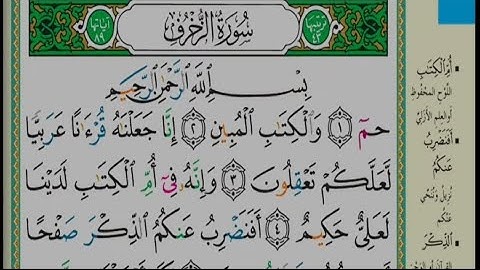 ترتيبها ٤٣
سُورَةُ الزُّخْرُفِ
آياتها ٨٩
بِسْمِ ٱللَّهِ ٱلرَّحْمَٰنِ ٱلرَّحِيمِ
حمٓ ١ وَٱلْكِتَٰبِ ٱلْمُبِينِ ٢ إِنَّا جَعَلْنَٰهُ قُرْءَٰنًا عَرَبِيًّا
لَّعَلَّكُمْ تَعْقِلُونَ ٣ وَإِنَّهُۥ فِىٓ أُمِّ ٱلْكِتَٰبِ لَدَيْنَا
لَعَلِىٌّ حَكِيمٌ ٤ أَفَنَضْرِبُ عَنكُمُ ٱلذِّكْرَ صَفْحًا
أُمِّ ٱلْكِتَٰبِ
اللَّوْحِ المحفُوظِ
أو العِلمِ الأزَلِيِّ
أَفَنَضْرِبُ
عَنكُمُ
نُزِيلُ وَنُنَحِّي
عَنْكُم
ٱلذِّكْرَ